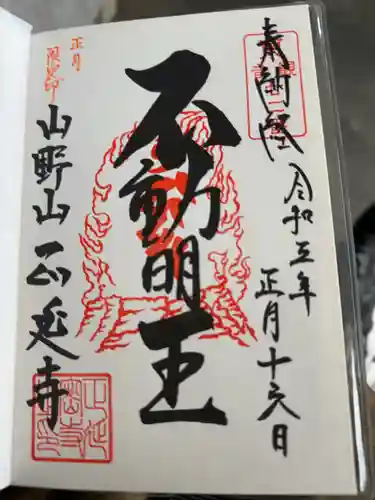 奉納経
令和五年
正月十六日
不動明王
正月
限定印
山野山
正延寺